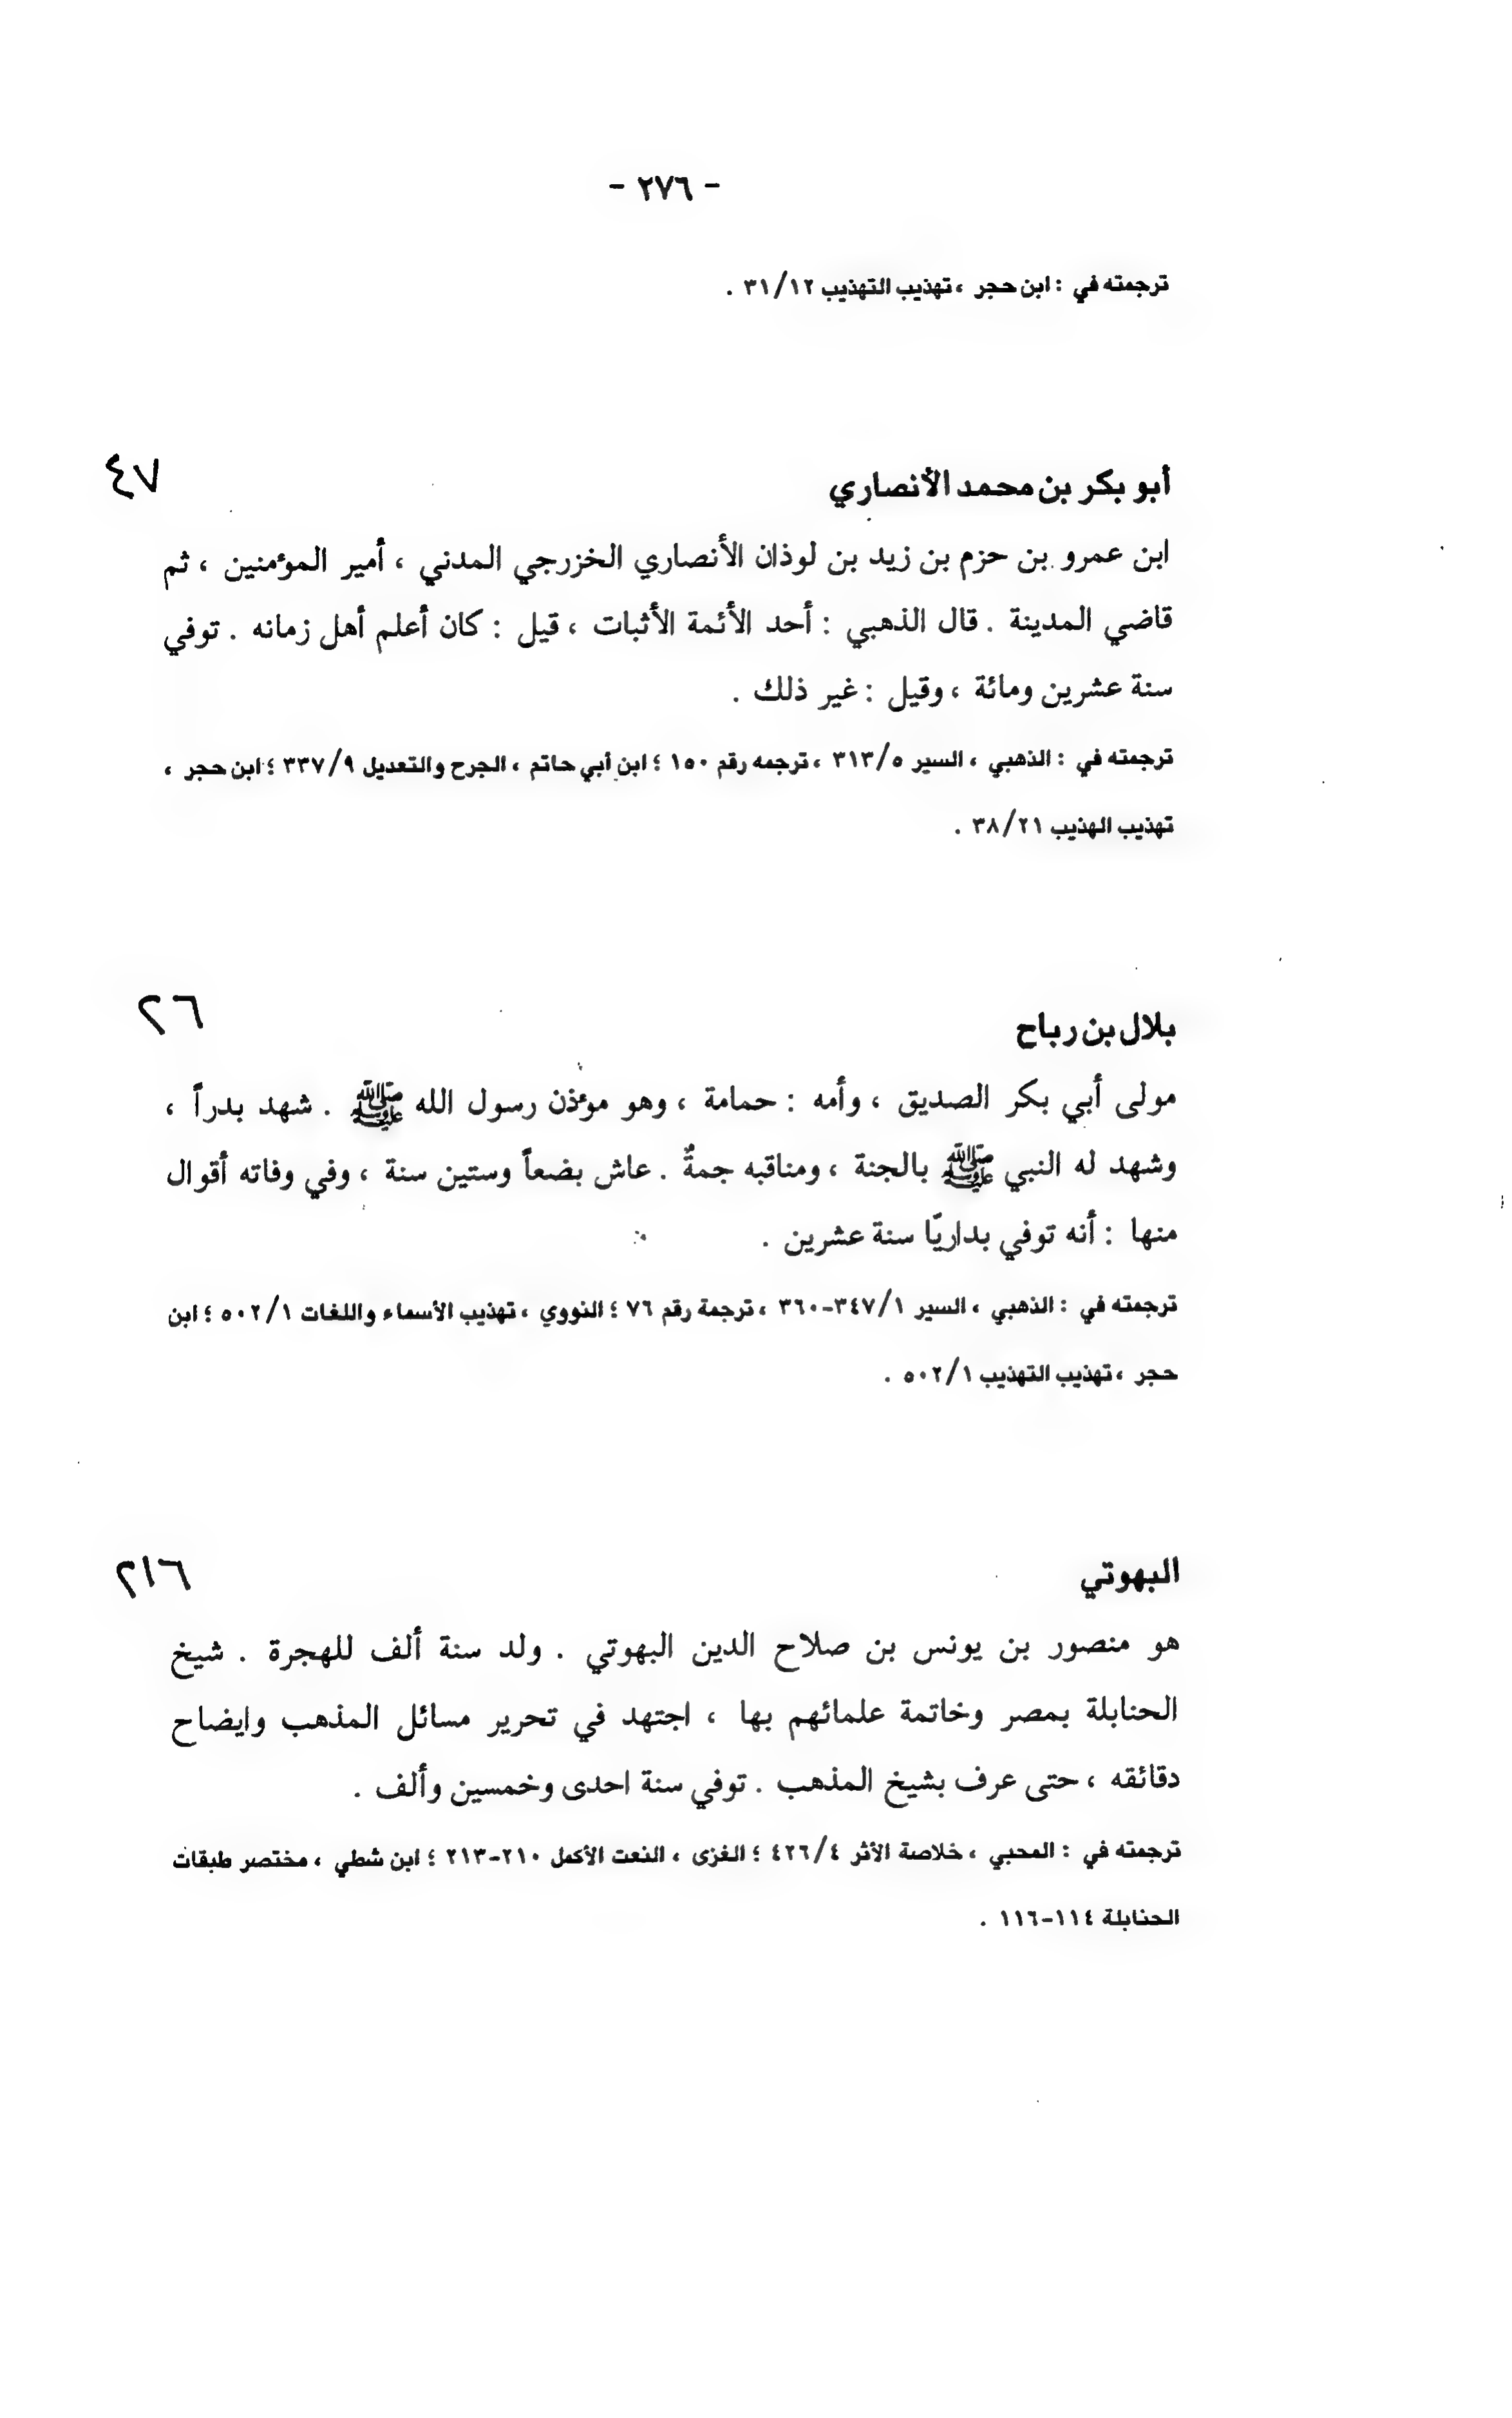 - ٢٧٦ -
ترجمته في : ابن حجر ، تهذيب التهذيب ٣١/١٢ .
أبو بكر بن محمد الأنصاري ٤٧
ابن عمرو بن حزم بن زيد بن لوذان الأنصاري الخزرجي المدني ، أمير المؤمنين ، ثم
قاضي المدينة . قال الذهبي : أحد الأئمة الأثبات ، قيل : كان أعلم أهل زمانه . توفي
سنة عشرين ومائة ، وقيل : غير ذلك .
ترجمته في : الذهبي ، السير ٣١٣/٥ ، ترجمه رقم ١٥٠ ؛ ابن أبي حاتم ، الجرح والتعديل ٣٣٧/٩ ؛ ابن حجر ،
تهذيب الهذيب ٣٨/٢١ .
بلال بن رباح ٢٦
مولى أبي بكر الصديق ، وأمه : حمامة ، وهو مؤذن رسول الله ﷺ . شهد بدراً ،
وشهد له النبي ﷺ بالجنة ، ومناقبه جمةٌ . عاش بضعاً وستين سنة ، وفي وفاته أقوال
منها : أنه توفي بداريّا سنة عشرين .
ترجمته في : الذهبي ، السير ٣٤٧/١-٣٦٠ ، ترجمة رقم ٧٦ ؛ النووي ، تهذيب الأسماء واللغات ٥٠٢/١ ؛ ابن
حجر ، تهذيب التهذيب ٥٠٢/١ .
البهوتي ٢١٦
هو منصور بن يونس بن صلاح الدين البهوتي . ولد سنة ألف للهجرة . شيخ
الحنابلة بمصر وخاتمة علمائهم بها ، اجتهد في تحرير مسائل المذهب وايضاح
دقائقه ، حتى عرف بشيخ المذهب . توفي سنة احدى وخمسين وألف .
ترجمته في : المحبي ، خلاصة الأثر ٤٢٦/٤ ؛ الغزى ، النعت الأكمل ٢١٠-٢١٣ ؛ ابن شطي ، مختصر طبقات
الحنابلة ١١٤-١١٦ .